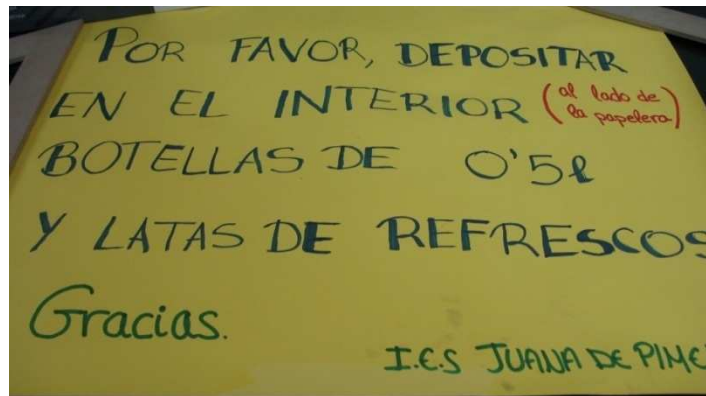 POR FAVOR, DEPOSITAR
EN EL INTERIOR (al lado de
la papelera)
BOTELLAS DE 0'5l
Y LATAS DE REFRESCOS
Gracias.
I.E.S JUANA DE PIME